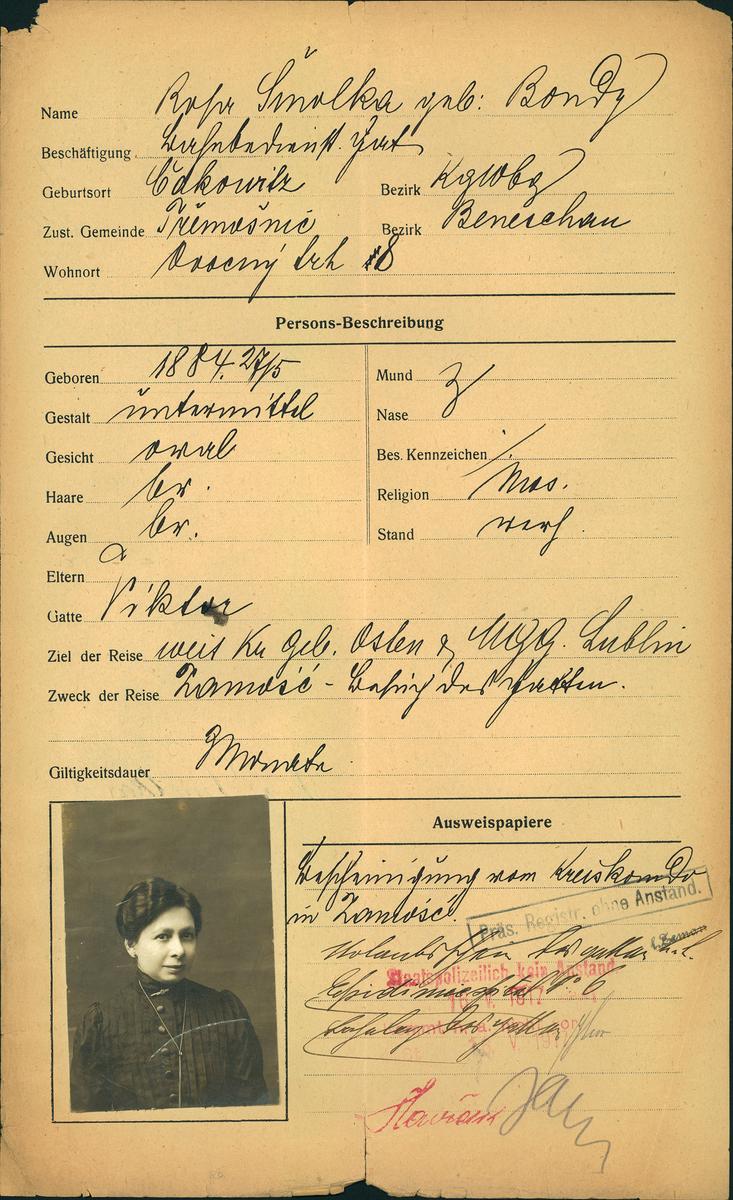 Name Rosa Smolka geb: Bondy
Beschäftigung Bahnbedienst. Gat
Geburtsort Cakowitz Bezirk KglWbg
Zust. Gemeinde Třemošnic Bezirk Beneschau
Wohnort Ovocný trh 8
Persons-Beschreibung
Geboren 1884. 27/5 Mund
Gestalt untermittel Nase
Gesicht oval Bes. Kennzeichen
Haare br. Religion Mos.
Augen br. Stand verh.
Eltern
Gatte Viktor
Ziel der Reise weit Kr geb. Osten & MGG. Lublin
Zweck der Reise Zamość - Besuch des Gatten.
Giltigkeitsdauer 3 Monate
Ausweispapiere
Bescheinigung vom Kreiskomdo
in Zamość.
Präs. Registr. ohne Anstand.
Urlaubsschein des Gatten
Staatspolizeilich kein Anstand